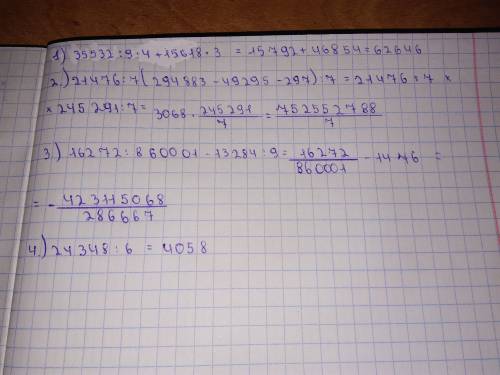 1) 35532:9·4+15618·3 = 15792+46854=62646
2.) 21476:7(294883-49295-297):7=21476:7×
×245291:7= 3068·245291/7=752552788/7
3.) 16272:860001-13284:9=16272/860001-1476=
=-423115068/286667
4.) 24348:6 = 4058